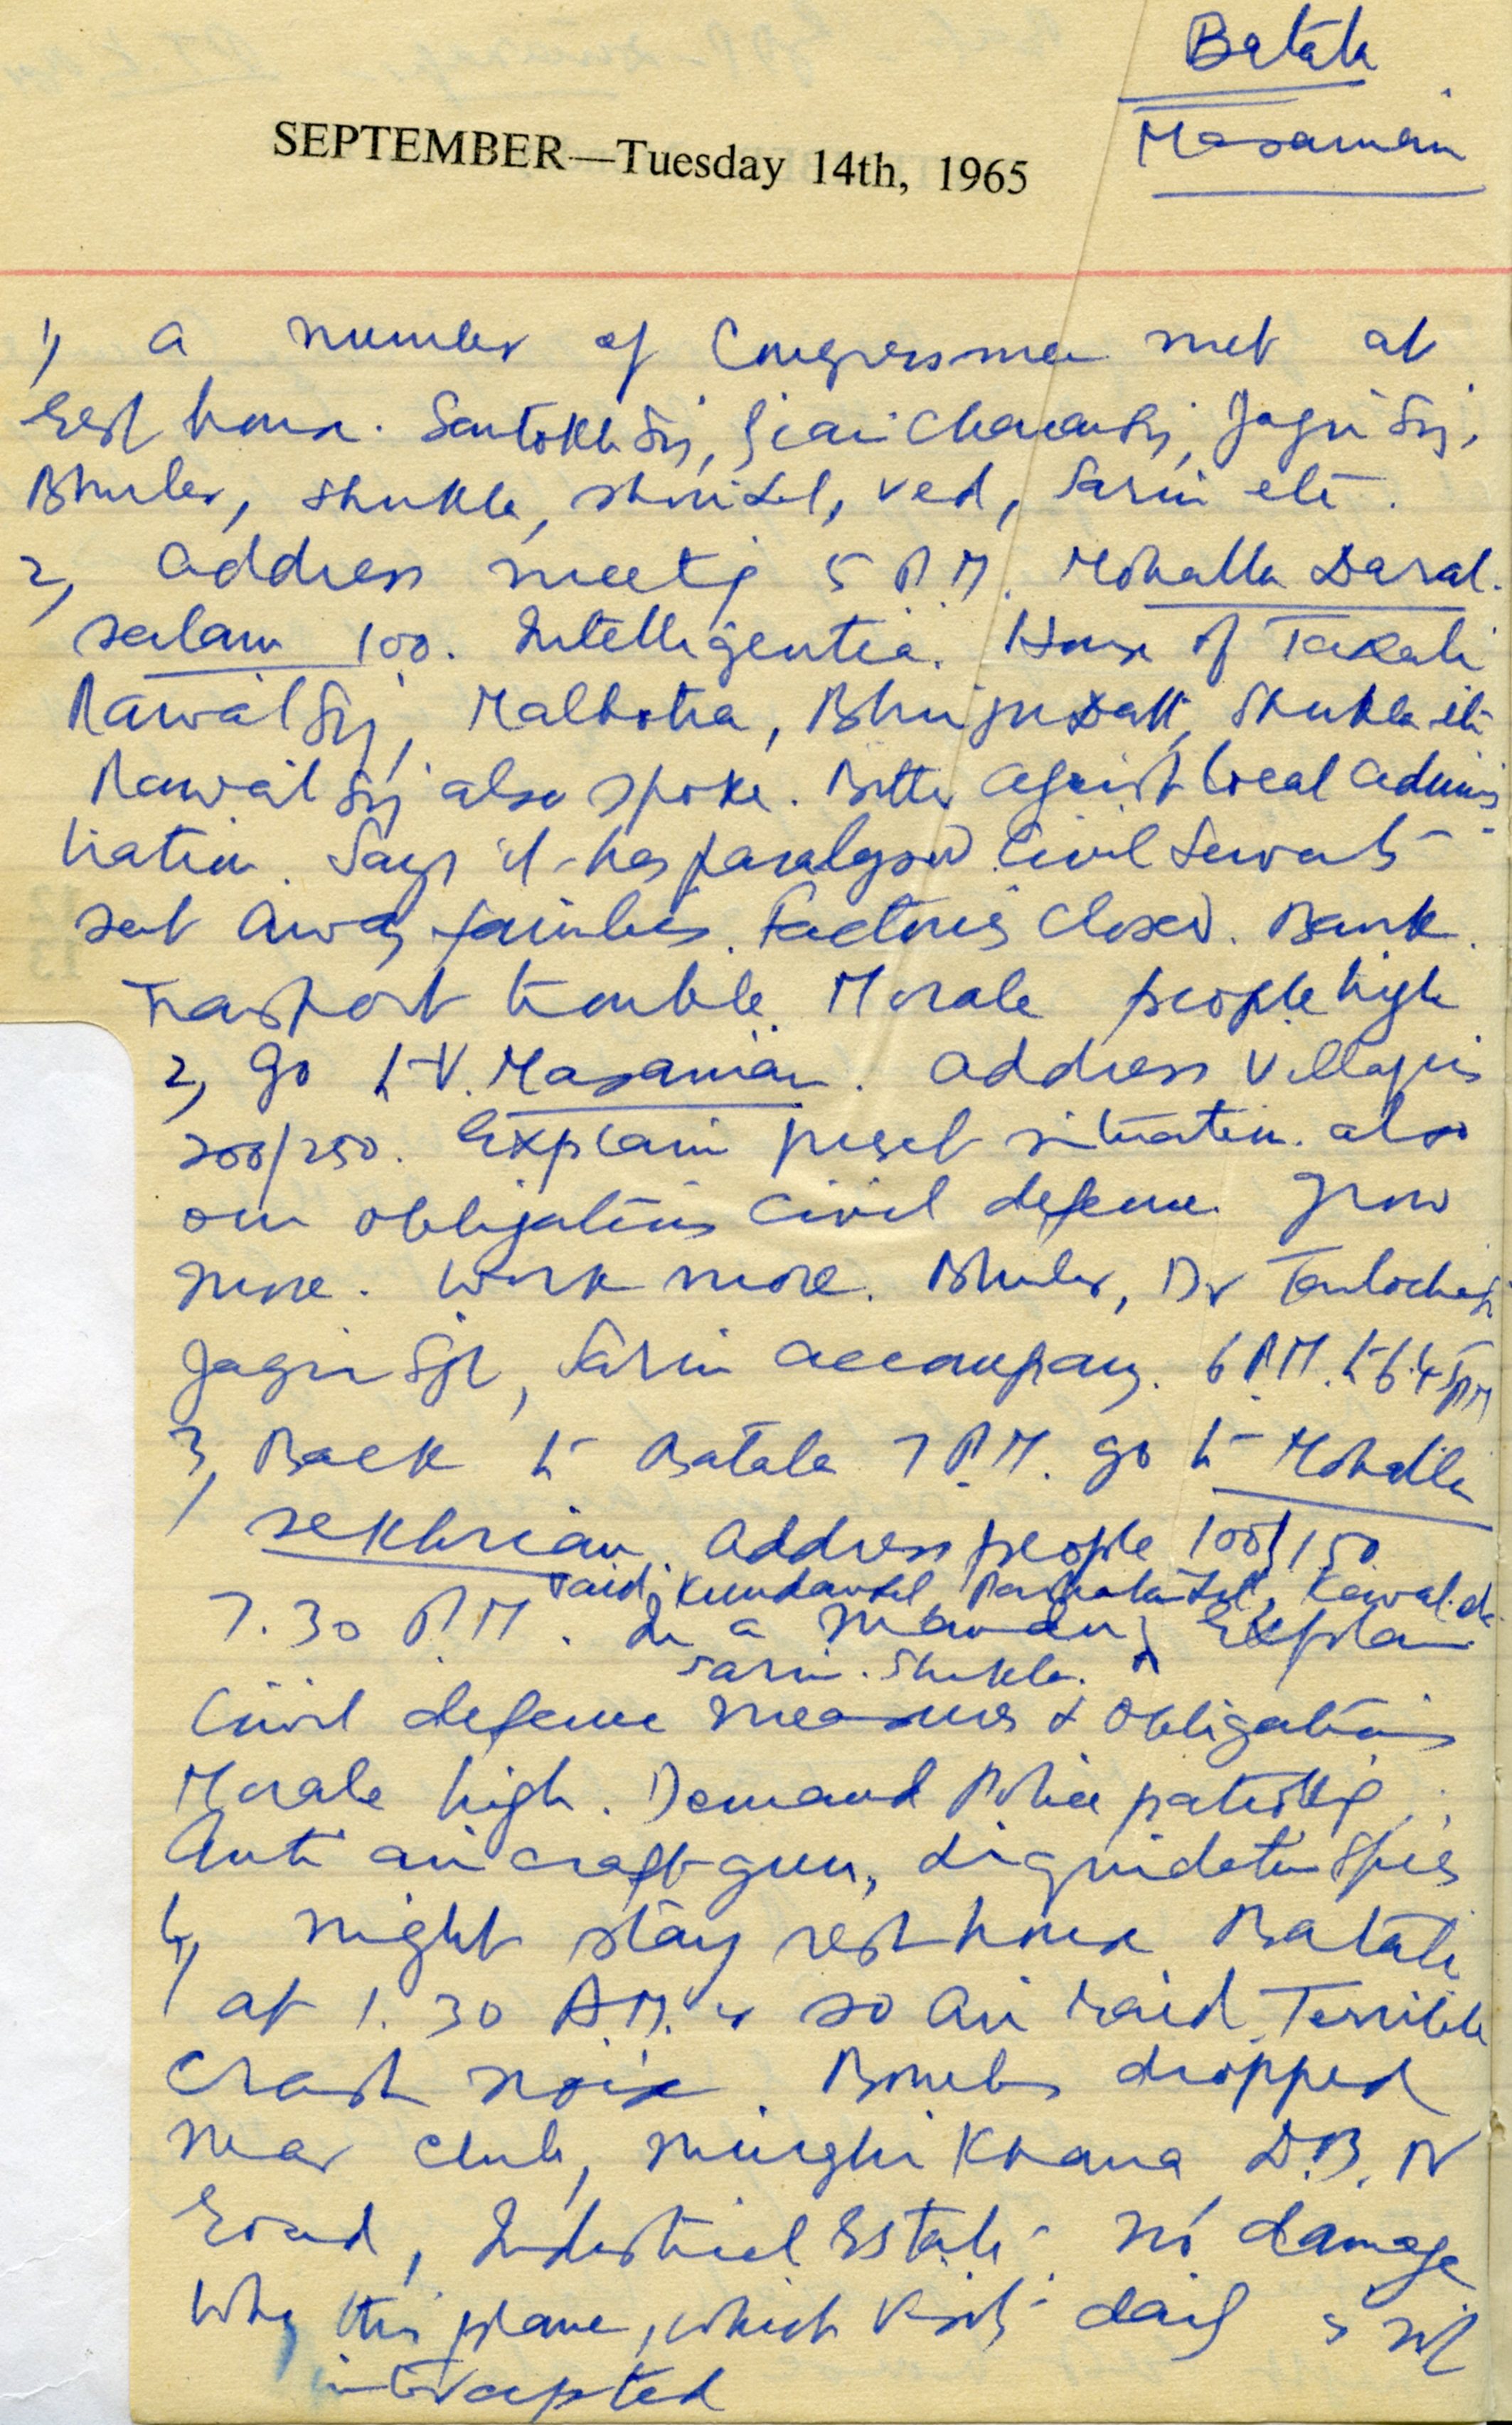 Batala
Masanian
SEPTEMBER—Tuesday 14th, 1965
1, A number of Congressmen met at
rest house. Santokh Sij, Giani Charan Sij, Jagir Sij,
Bhuler, Shukla, Lal, Ved, Sarin etc.
2, Address meetig 5 P.M. Mohalla Daral-
salam 100. Intelligentia. House of
Rawail Sij, Malhotra, Datt, Shukla etc
Rawail Sij also spoke. Bitter against local adminis-
tration. Says it has paralysed Civil Servants
sent away families. Factories closed. Bank.
Transport trouble. Morale people high
2, go to V. Masanian. Address Villagers
200/250. Explain present situation. also
our obligations civil defence. Grow
more. Work more. Bhuler, Dr
Jagir Sgh, Sarin accompany. 6 P.M. to 6.45 PM
3, Back to Batala 7 P.M. go to Mohalla
Sekhrian. Address people 100/150
Kundan Lal, Kewal etc
7.30 P.M. In a Mandir, Explain
Sarin. Shukla.
Civil defence measures & obligations
Morale high. Demand Police patrollig,
Anti aircraft gun, Liquidation Spies
4, night stay rest house Batala
at 1.30 A.M. or so Air raid. Terrible
crash noise. Bombs dropped
near club, Murghi Khana D.B.N
Road, Industrial Estate. No damage
Why this plane, which visits daily is not
intercepted